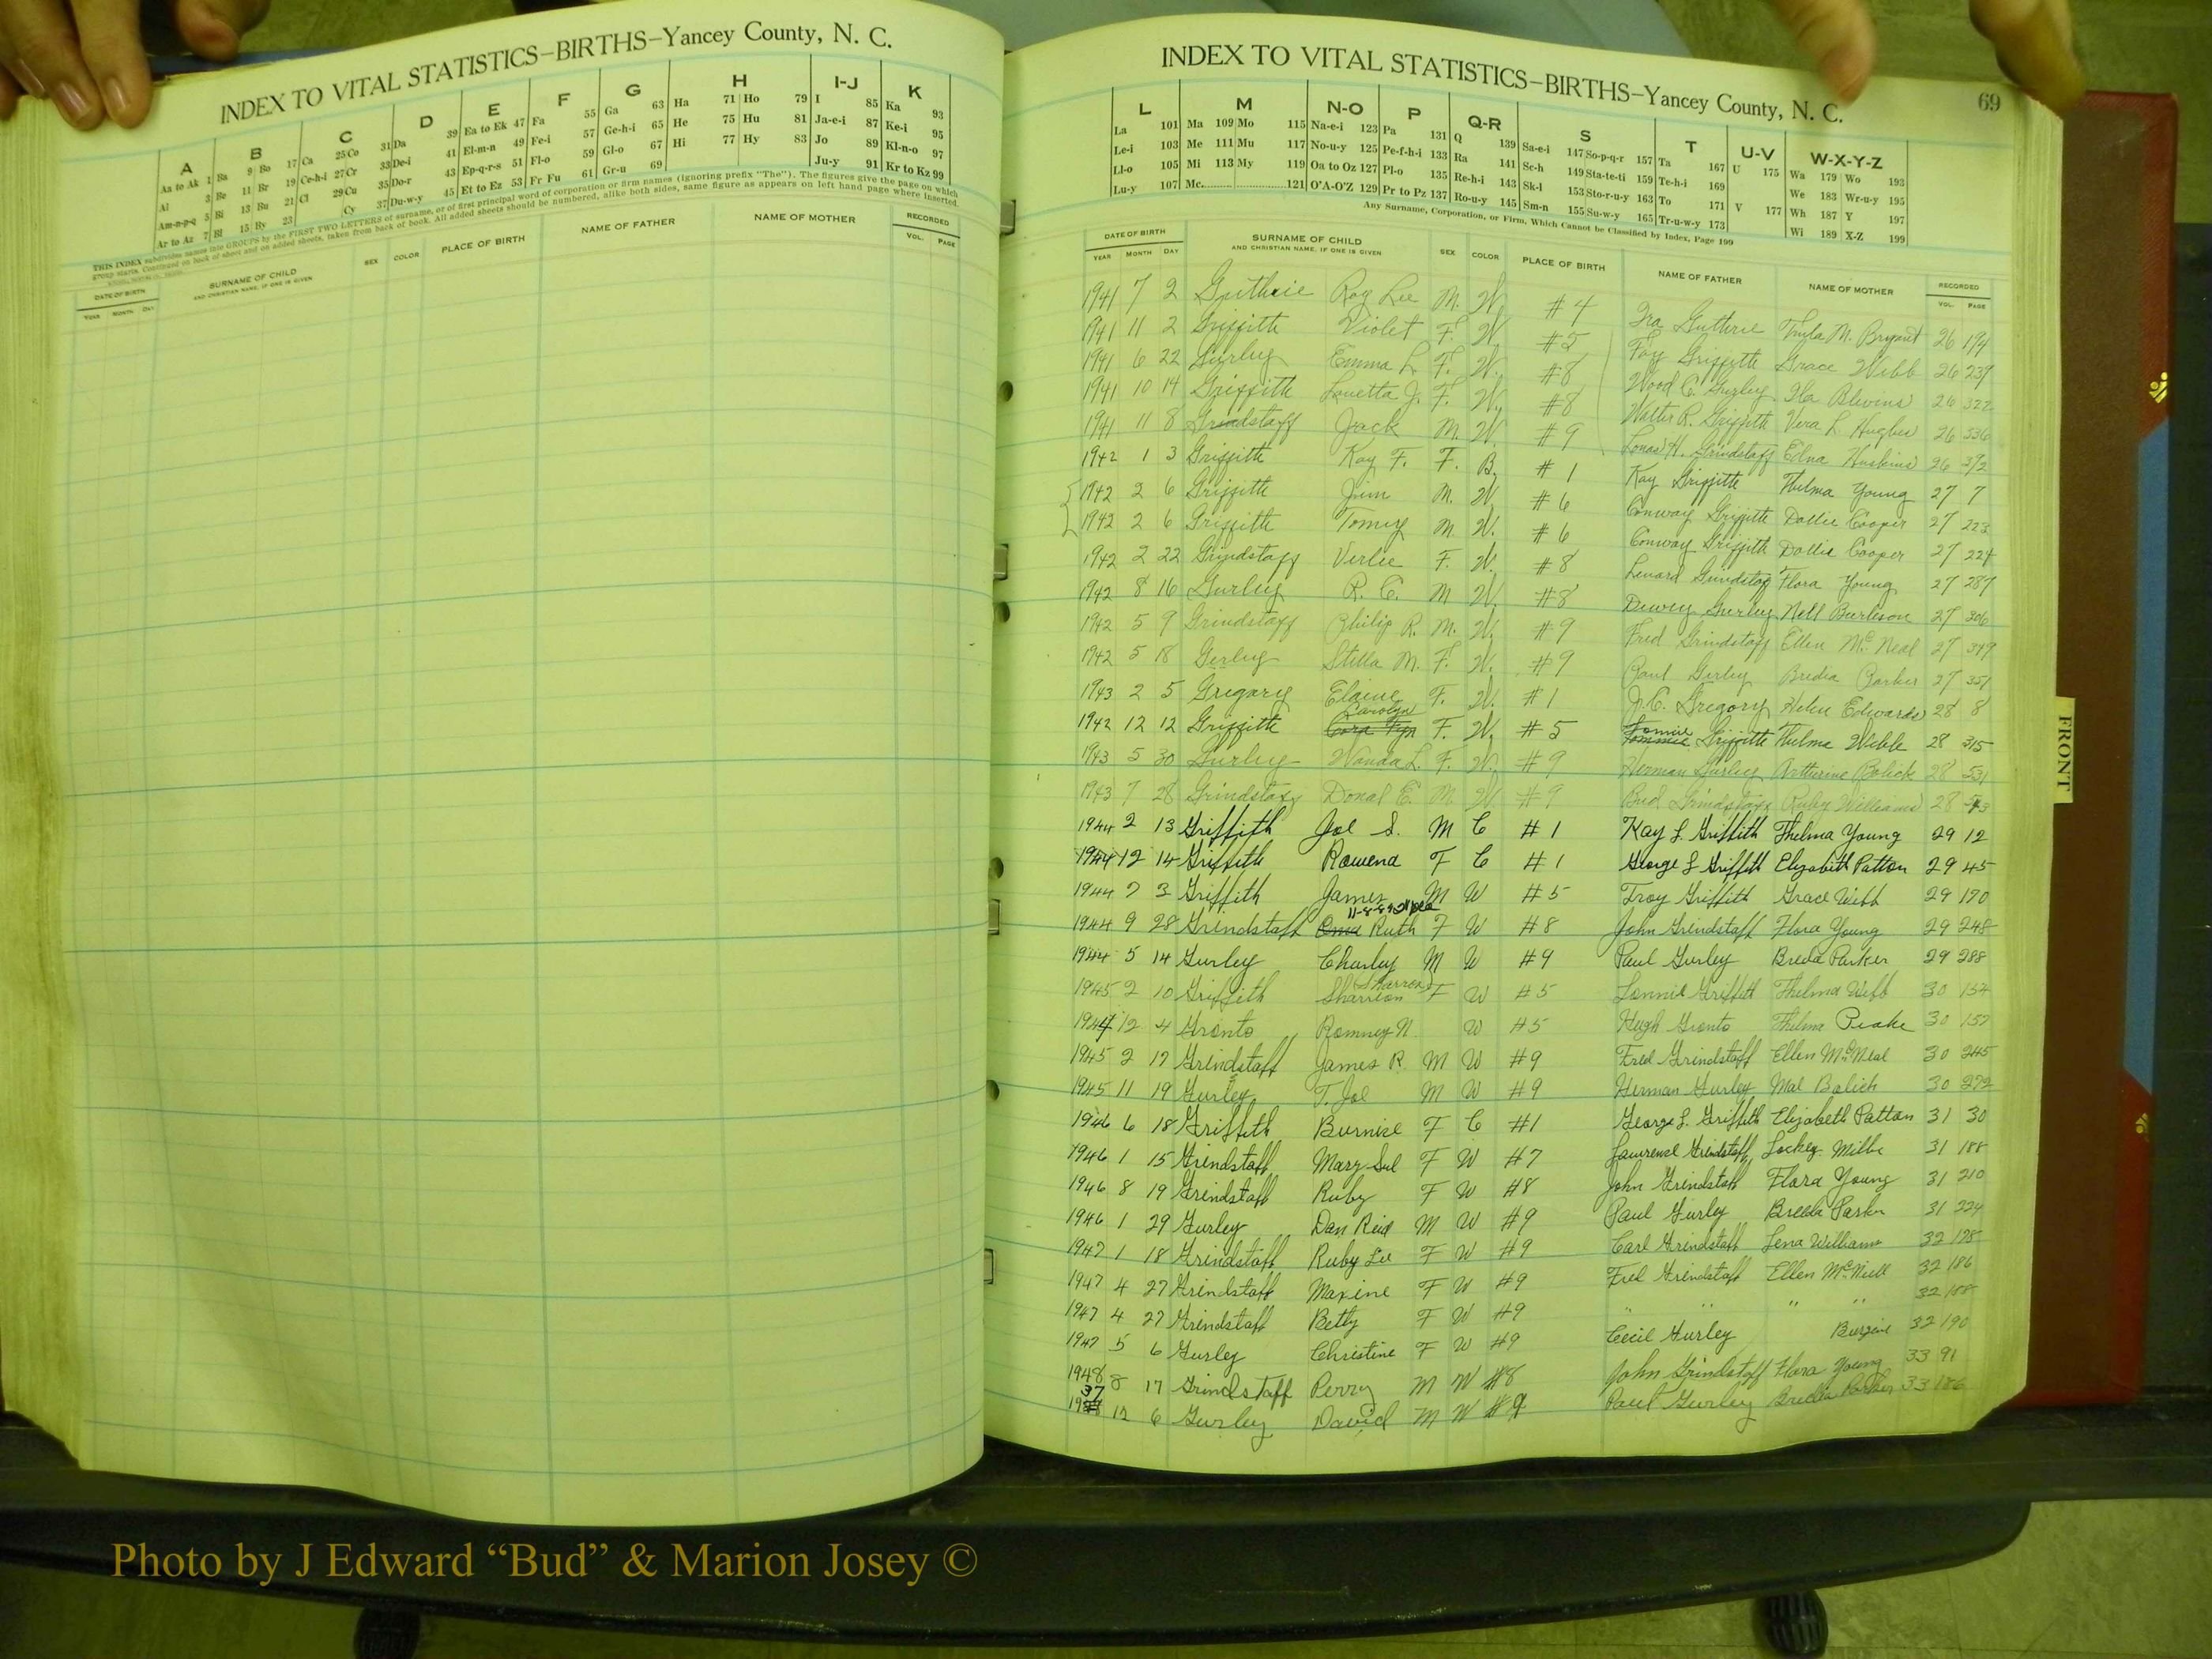 INDEX TO VITAL STATISTICS—BIRTHS—Yancey County, N. C.
A B C D E F G H I-J K
Aa to Ak 1 Ba 9 Bo 17 Ca 25 Co 31 Da 39 Ea to Ek 47 Fa 55 Ga 63 Ha 71 Ho 79 I 85 Ka 93
Al 3 Be 11 Br 19 Ce-h-i 27 Cr 33 De-i 41 El-m-n 49 Fe-i 57 Ge-h-i 65 He 75 Hu 81 Ja-e-i 87 Ke-i 95
Am-n-p-q 5 Bi 13 Bu 21 Cl 29 Cu 35 Do-r 43 Ep-q-r-s 51 Fl-o 59 Gl-o 67 Hi 77 Hy 83 Jo 89 Kl-n-o 97
Ar to Az 7 Bl 15 By 23 Cy 37 Du-w-y 45 Et to Ez 53 Fr Fu 61 Gr-u 69 Ju-y 91 Kr to Kz 99
THIS INDEX subdivides names into GROUPS by the FIRST TWO LETTERS of surname, or of first principal word of corporation or firm names (ignoring prefix "The"). The figures give the page on which
group starts. Continued on back of sheet and on added sheets, taken from back of book. All added sheets should be numbered, alike both sides, same figure as appears on left hand page where inserted.
DATE OF BIRTH SURNAME OF CHILD SEX COLOR PLACE OF BIRTH NAME OF FATHER NAME OF MOTHER RECORDED
YEAR MONTH DAY AND CHRISTIAN NAME, IF ONE IS GIVEN VOL. PAGE
INDEX TO VITAL STATISTICS—BIRTHS—Yancey County, N. C.
69
L M N-O P Q-R S T U-V W-X-Y-Z
La 101 Ma 109 Mo 115 Na-e-i 123 Pa 131 Q 139 Sa-e-i 147 So-p-q-r 157 Ta 167 U 175 Wa 179 Wo 193
Le-i 103 Me 111 Mu 117 No-u-y 125 Pe-f-h-i 133 Ra 141 Sc-h 149 Sta-te-ti 159 Te-h-i 169 We 183 Wr-u-y 195
Ll-o 105 Mi 113 My 119 Oa to Oz 127 Pl-o 135 Re-h-i 143 Sk-l 153 Sto-r-u-y 163 To 171 V 177 Wh 187 Y 197
Lu-y 107 Mc 121 O'A-O'Z 129 Pr to Pz 137 Ro-u-y 145 Sm-n 155 Su-w-y 165 Tr-u-w-y 173 Wi 189 X-Z 199
Any Surname, Corporation, or Firm, Which Cannot be Classified by Index, Page 199
DATE OF BIRTH SURNAME OF CHILD SEX COLOR PLACE OF BIRTH NAME OF FATHER NAME OF MOTHER RECORDED
YEAR MONTH DAY AND CHRISTIAN NAME, IF ONE IS GIVEN VOL. PAGE
1941 7 2 Guthrie Roy Lee M. W. #4 Ira Guthrie M. Bryant 26 194
1941 11 2 Griffith Violet F. W. #5 Foy Griffith Grace Webb 26 239
1941 6 22 Gurley Emma L. F. W. #8 Wood C. Gurley Ila Blevins 26 322
1941 10 14 Griffith Louetta J. F. W. #8 Walter R. Griffith Vera L. Hughes 26 336
1941 11 8 Grindstaff Jack M. W. #9 H. Grindstaff Edna Huskins 26 372
1942 1 3 Griffith Kay F. F. B. #1 Kay Griffith Thelma Young 27 7
1942 2 6 Griffith Jim M. W. #6 Conway Griffith Dollie Cooper 27 223
1942 2 6 Griffith Tomy M W. #6 Conway Griffith Dollie Cooper 27 224
1942 2 22 Grindstaff Verlee F. W. #8 Lenard Grindstaff Flora Young 27 287
1942 8 16 Gurley R. C. M W. #8 Dewey Gurley Nell Burleson 27 306
1942 5 9 Grindstaff Philip R. M. W. #9 Fred Grindstaff Ellen McNeal 27 349
1942 5 18 Gurley Stella M. F. W. #9 Paul Gurley Breda Parker 27 351
1943 2 5 Gregory Elaine F. W. #1 J. C. Gregory Helen Edwards 28 8
1942 12 12 Griffith Carolyn F. W. #5 Lonnie Griffith Thelma Webb 28 315
1943 5 30 Gurley Wanda L. F. W. #9 Herman Gurley Bolick 28 531
1943 7 28 Grindstaff Donal E. M W #9 Bud Grindstaff Ruby Williams 28
1944 2 13 Griffith Joe S. M C #1 Kay L. Griffith Thelma Young 29 12
1944 12 14 Griffith Rowena F C #1 George L Griffith Elizabeth Patton 29 45
1944 7 3 Griffith James M W #5 Troy Griffith Grace Webb 29 170
1944 9 28 Grindstaff Ruth F W #8 John Grindstaff Flora Young 29 248
1944 5 14 Gurley Charley M W #9 Paul Gurley Breda Parker 29 288
1945 2 10 Griffith Sharron F W #5 Lonnie Griffith Thelma Webb 30 154
1944 12 4 Gronto Romney N. W #5 Hugh Gronto Thelma Peake 30 157
1945 2 17 Grindstaff James R. M W #9 Fred Grindstaff Ellen McNeal 30 245
1945 11 19 Gurley T. Joe M W #9 Herman Gurley Mae Bolick 30 272
1946 6 18 Griffith Burnise F C #1 George L. Griffith Elizabeth Patton 31 30
1946 1 15 Grindstaff Mary Sue F W #7 Lawrence Grindstaff Lockey 31 188
1946 8 19 Grindstaff Ruby F W #8 John Grindstaff Flora Young 31 210
1946 1 29 Gurley Dan Reid M W #9 Paul Gurley Breda Parker 31 224
1947 1 18 Grindstaff Ruby Lee F W #9 Carl Grindstaff Lena Williams 32 178
1947 4 27 Grindstaff Maxine F W #9 Fred Grindstaff Ellen McNeill 32 186
1947 4 27 Grindstaff Betty F W #9 " " " " 32 188
1947 5 6 Gurley Christine F W #9 Cecil Gurley 32 190
1948 8 17 Grindstaff Perry M W #8 John Grindstaff Flora Young 33 91
12 6 Gurley David M W #9 Paul Gurley Bredia Parker 33 186
FRONT
Photo by J Edward “Bud” & Marion Josey ©